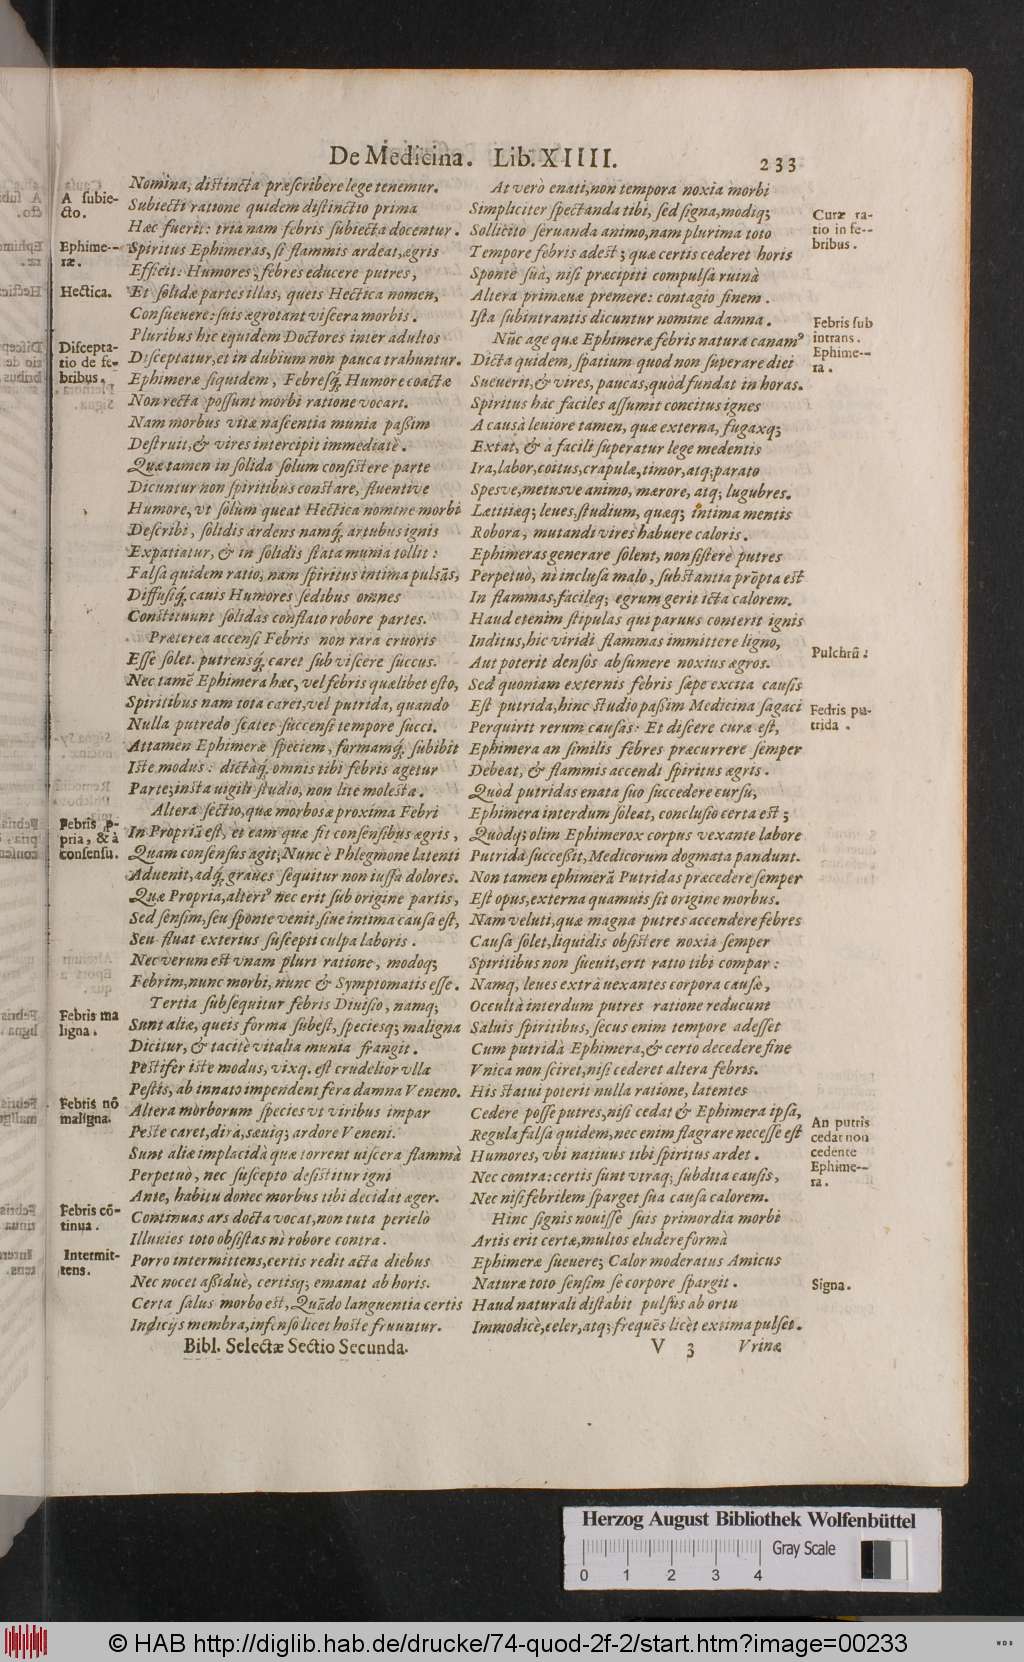 De Medicina. Lib. XIIII. 233
A subie-
cto.
Ephime-
ræ.
Hectica.
Discepta-
tio de fe-
bribus.
Febris p-
pria, & à
consensu.
Febris ma
ligna.
Febris nō
maligna.
Febris cō-
tinua.
Intermit-
tens.
Nomina, distincta præscribere lege tenemur.
Subiecti ratione quidem distinctio prima
Hæc fuerit: tria nam febris subiecta docentur.
Spiritus Ephimeras, si flammis ardeat, ægris
Efficit: Humores; febres educere putres,
Et solidæ partes illas, queis Hectica nomen,
Consueuere: suis ægrotant viscera morbis.
Pluribus hic equidem Doctores inter adultos
Disceptatur, et in dubium non pauca trahuntur.
Ephimeræ siquidem, Febresq́; Humore coactæ
Non recta possunt morbi ratione vocari.
Nam morbus vitæ nascentia munia passim
Destruit, & vires intercipit immediatè.
Quæ tamen in solida solùm consistere parte
Dicuntur non spiritibus constare, fluentive
Humore, vt solùm queat Hectica nomine morbi
Describi, solidis ardens namq́; artubus ignis
Expatiatur, & in solidis stata munia tollit:
Falsa quidem ratio, nam spiritus intima pulsās,
Diffusiq́; cauis Humores sedibus omnes
Constituunt solidas conflato robore partes.
Præterea accensi Febris non rara cruoris
Esse solet. putrensq́; caret sub viscere succus.
Nec tamē Ephimera hæc, vel febris quælibet esto,
Spiritibus nam tota caret, vel putrida, quando
Nulla putredo scatet succensi tempore succi.
Attamen Ephimeræ speciem, formamq́; subibit
Iste modus: dictàq́; omnis tibi febris agetur
Parte; insta uigili studio, non lite molesta.
Altera sectio, quæ morbosæ proxima Febri
In Propriā est, et eam quæ fit consensibus ægris,
Quam consensus agit; Nunc è Phlegmone latenti
Aduenit, adq́; graues sequitur non iussa dolores.
Quæ Propria, alteri9 nec erit sub origine partis,
Sed sensim, seu sponte venit, siue intima causa est,
Seu fluat exterius suscepti culpa laboris.
Nec verum est vnam pluri ratione, modoq;
Febrim, nunc morbi, nunc & Symptomatis esse.
Tertia subsequitur febris Diuisio, namq;
Sunt aliæ, queis forma subest, speciesq; maligna
Dicitur, & tacitè vitalia munia frangit.
Pestifer iste modus, vixq. est crudelior vlla
Pestis, ab innato impendent fera damna Veneno.
Altera morborum species vt viribus impar
Peste caret, dira, sæuiq; ardore Veneni.
Sunt aliæ implacida quæ torrent uiscera flammà
Perpetuò, nec suscepto desistitur igni
Ante, habitu donec morbus tibi decidat æger.
Continuas ars docta vocat, non tuta perielo
Illuuies toto obsistas ni robore contra.
Porro intermittens, certis redit acta diebus
Nec nocet assiduè, certisq; emanat ab horis.
Certa salus morbo est, Quādo languentia certis
Indicijs membra, infenso licet hoste fruuntur.
At verò enati, non tempora noxia morbi
Simpliciter spectanda tibi, sed signa, modiq;
Sollicito seruanda animo, nam plurima toto
Tempore febris adest; quæ certis cederet horis
Sponte suà, nisi præcipiti compulsa ruinà
Altera primæuæ premere: contagio finem.
Ista subintrantis dicuntur nomine damna.
Nūc age quæ Ephimeræ febris natura canam9
Dicta quidem, spatium quod non superare diei
Sueuerit, & vires, paucas, quòd fundat in horas.
Spiritus hàc faciles assumit concitus ignes
A causà leuiore tamen, quæ externa, fugaxq;
Extat, & à facili superatur lege medentis
Ira, labor, coitus, crapulæ, timor, atq; parato
Spesve, metusve animo, mærore, atq; lugubres.
Lætitiæq; leues, studium, quæq; intima mentis
Robora, mutandi vires habuere caloris.
Ephimeras generare solent, non sistere putres
Perpetuò, ni inclusa malo, substantia prōpta est
In flammas, facileq; egrum gerit icta calorem.
Haud etenim stipulas qui paruus conterit ignis
Inditus, hic viridi flammas immittere ligno,
Aut poterit densos absumere noxius ægros.
Sed quoniam externis febris sæpe excita causis
Est putrida, hinc studio passim Medicina sagaci
Perquirit rerum causas: Et discere curæ est,
Ephimera an similis febres præcurrere semper
Debeat, & flammis accendi spiritus ægris.
Quòd putridas enata suo succedere cursu,
Ephimera interdum soleat, conclusio certa est;
Quòdq; olim Ephimerox corpus vexante labore
Putrida successit, Medicorum dogmata pandunt.
Non tamen ephimerā Putridas præcedere semper
Est opus, externa quamuis sit origine morbus.
Nam veluti, quæ magna putres accendere febres
Causa solet, liquidis obsistere noxia semper
Spiritibus non sueuit, erit ratio tibi compar:
Namq; leues extrà uexantes corpora causæ,
Occultà interdum putres ratione reducunt
Saluis spiritibus, secus enim tempore adesset
Cum putridà Ephimera, & certo decedere fine
Vnica non sciret, nisi cederet altera febris.
His statui poterit nulla ratione, latentes
Cedere posse putres, nisi cedat & Ephimera ipsa,
Regula falsa quidem, nec enim flagrare necesse est
Humores, vbi natiuus tibi spiritus ardet.
Nec contra: certis sunt vtraq; subdita causis,
Nec nisi febrilem sparget sua causa calorem.
Hinc signis nouisse suis primordia morbi
Artis erit certæ, multos eludere formà
Ephimeræ sueuere; Calor moderatus Amicus
Naturæ toto sensim se corpore spargit.
Haud naturali distabit pulsus ab ortu
Immodicè, celer, atq; frequēs licèt extima pulset.
Curæ ra-
tio in fe-
bribus.
Febris sub
intrans.
Ephime-
ra.
Pulchrū:
Fedris pu-
trida.
An putris
cedat non
cedente
Ephime-
ra.
Signa.
Bibl. Selectæ Sectio Secunda. V 3 Vrinæ
Herzog August Bibliothek Wolfenbüttel
Gray Scale
0 1 2 3 4
© HAB http://diglib.hab.de/drucke/74-quod-2f-2/start.htm?image=00233